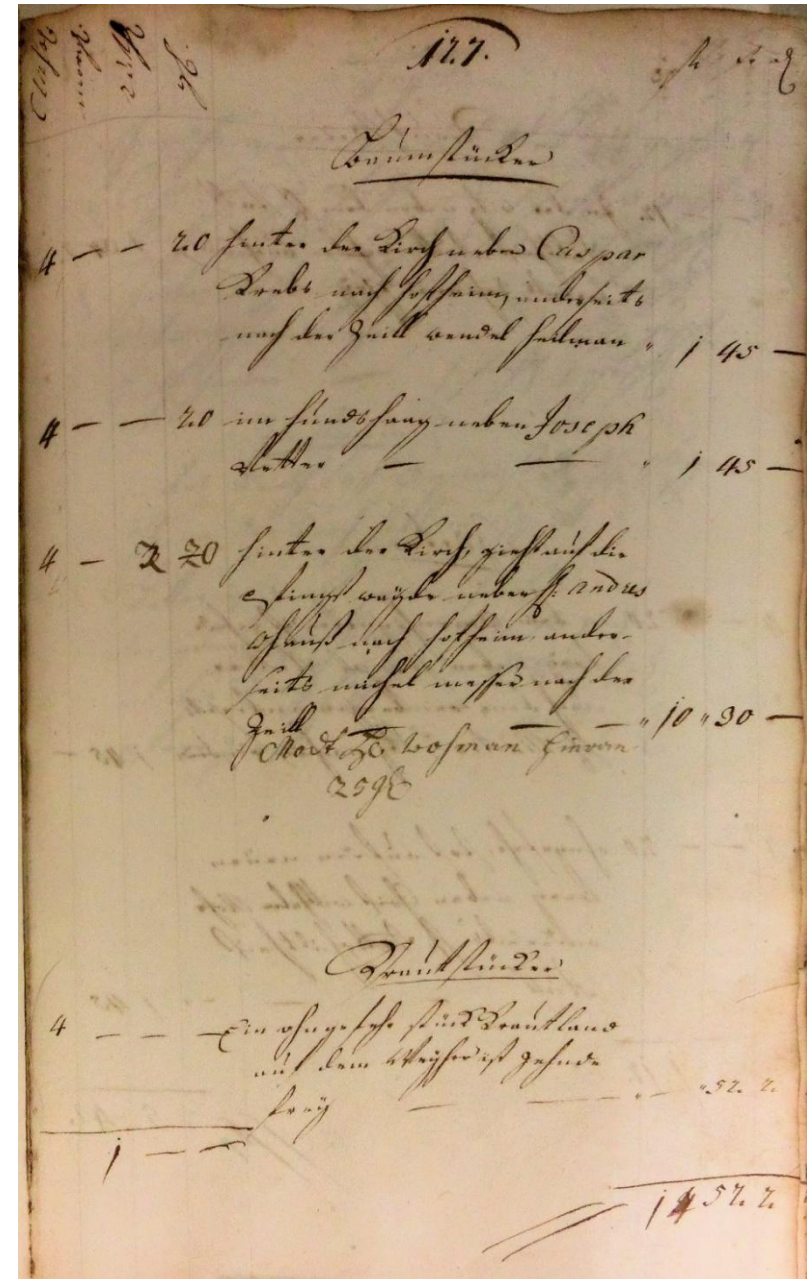 127.
Baumstücker
4 — — 20 hinter der Kirch neben Caspar
Krebs nach hoffheim, anderseits
nach der Zeill wendel heilman " 1 45 —
4 — — 20 im hundshaag neben Joseph
Vetter — — " 1 45 —
4 — 2 20 hinter der Kirch, zieht auf die
pfingst wayde neben
nach hoffheim ander-
seits michel messer nach der
Zeill — — " 10 " 30 —
hievon
25
Krautstücker
4 — — — Ein ohngefehr stück Krautland
auf dem Weyher ist zehnde
frey — — " — " 52. 2.
1 — —
14 52. 2.